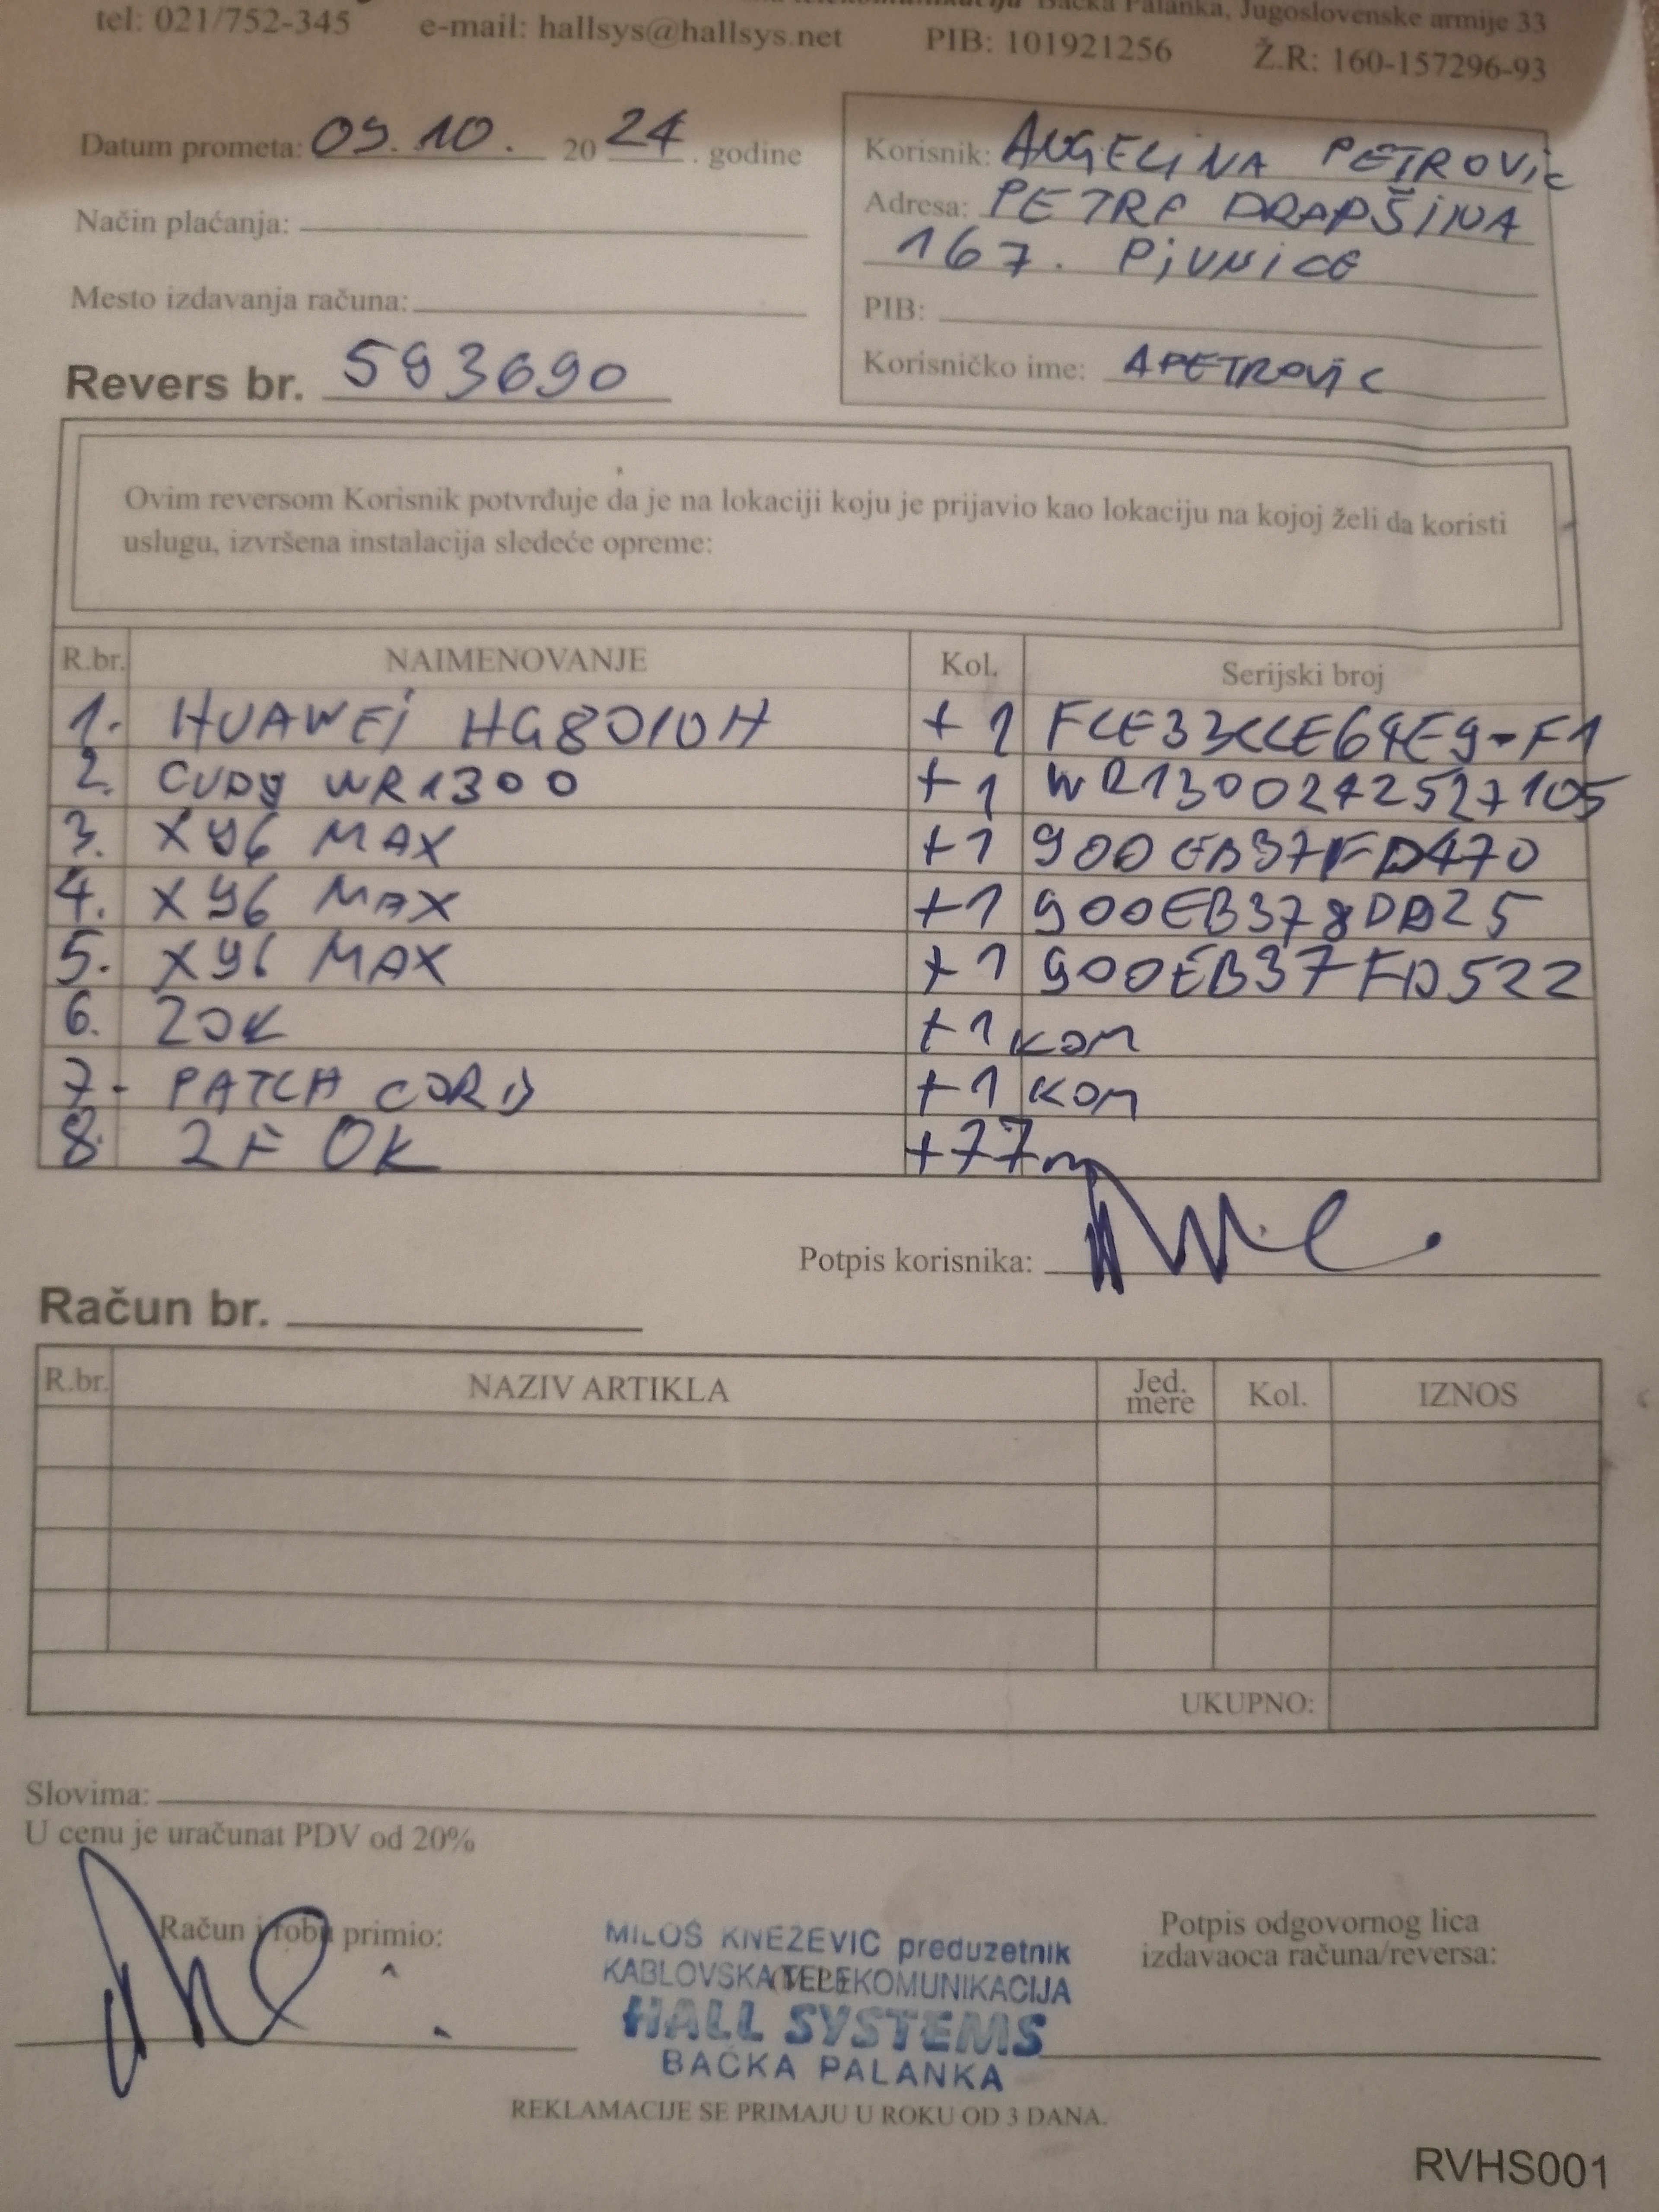 Bačka Palanka, Jugoslovenske armije 33
tel: 021/752-345 e-mail: hallsys@hallsys.net PIB: 101921256 Ž.R: 160-157296-93
Datum prometa: 09.10. 2024. godine
Način plaćanja:
Mesto izdavanja računa:
Revers br. 593690
Korisnik: ANGELiNA PETROVic
Adresa: PETRA DRAPŠiNA
167. PiVNiCE
PIB:
Korisničko ime: APETROVic
Ovim reversom Korisnik potvrđuje da je na lokaciji koju je prijavio kao lokaciju na kojoj želi da koristi
uslugu, izvršena instalacija sledeće opreme:
R.br. NAIMENOVANJE Kol. Serijski broj
1. HUAWEi HG8010H +1
2. CUDY WR1300 +1 WR1300242527105
3. X96 MAX +1 900EB37FD470
4. X96 MAX +1
5. X96 MAX +1 900EB37FD522
6. ZOK +1 KOM
7- PATCH CORD +1 KOM
8. 2F OK +77m
Potpis korisnika:
Račun br.
R.br. NAZIV ARTIKLA Jed. mere Kol. IZNOS
UKUPNO:
Slovima:
U cenu je uračunat PDV od 20%
Račun i robu primio:
MILOŠ KNEŽEVIĆ preduzetnik
KABLOVSKA TELEKOMUNIKACIJA
HALL SYSTEMS
BAČKA PALANKA
Potpis odgovornog lica
izdavaoca računa/reversa:
REKLAMACIJE SE PRIMAJU U ROKU OD 3 DANA.
RVHS001